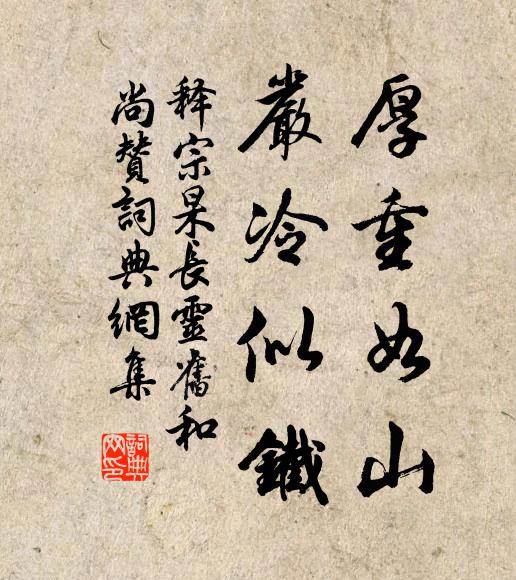 厚重如山
嚴冷似鐵
释宗杲長靈舊和
尚贊詞典網集
詞典
网印